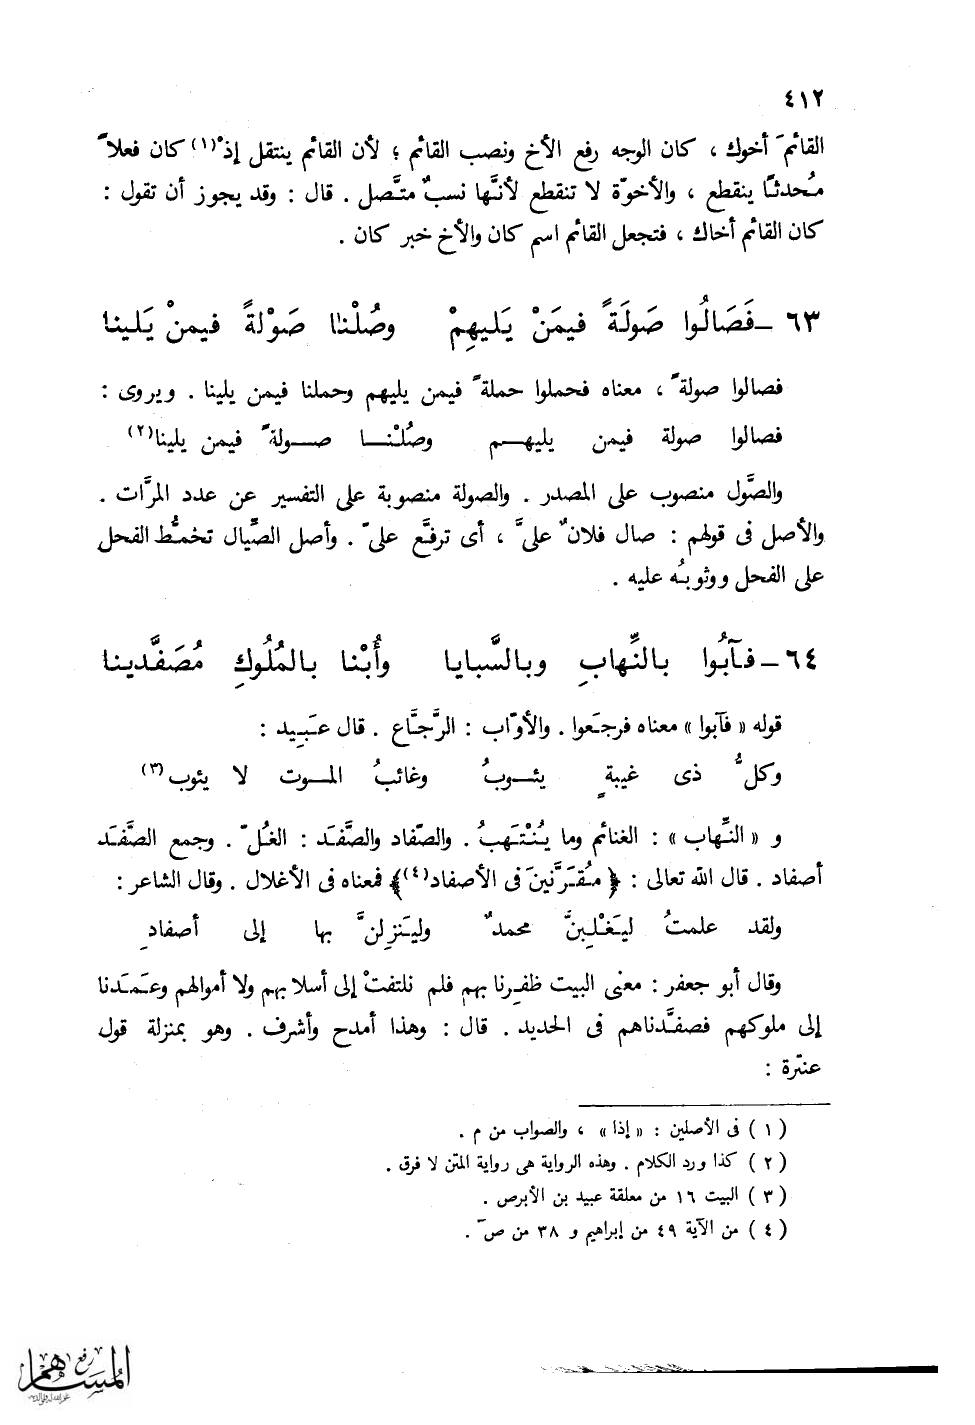 ٤١٢
القائمَ أخوك ، كان الوجه رفع الأخ ونصب القائم ؛ لأن القائم ينتقل إذْ(١) كان فعلاً
مُحدثًا ينقطع ، والأخوّة لا تنقطع لأنَّها نسبٌ متَّصل . قال : وقد يجوز أن تقول :
كان القائم أخاك ، فتجعل القائم اسم كان والأخ خبر كان .
٦٣ – فَصَالُوا صَولَةً فيمَنْ يَليهِمْ وصُلْنَا صَوْلةً فيمنْ يَلينا
فصالوا صولةً ، معناه فحملوا حملةً فيمن يليهم وحملنا فيمن يلينا . ويروى :
فصالوا صولة فيمن يليهــم وصُلْنــا صــولةً فيمن يلينا(٢)
والصَّول منصوب على المصدر . والصولة منصوبة على التفسير عن عدد المرَّات .
والأصل فى قولهم : صال فلانٌ علىَّ ، أى ترفَّع علىّ . وأصل الصِّيال تخمُّط الفحل
على الفحل ووثوبُه عليه .
٦٤ – فآبُوا بالنِّهابِ وبالسَّبايا وأُبْنا بالمُلُوكِ مُصَفَّدينا
قوله « فآبوا » معناه فرجَعوا . والأوّاب : الرَّجَّاع . قال عَبِيد :
وكلُّ ذى غيبةٍ يئــوبُ وغائبُ المــوت لا يئوب(٣)
و « النِّهاب » : الغنائم وما يُنْتَهبُ . والصّفاد والصَّفَد : الغُلّ . وجمع الصَّفَد
أصفاد . قال الله تعالى : ﴿ مُقَرَّنينَ فى الأصفاد(٤)﴾ فمعناه فى الأغلال . وقال الشاعر :
ولقد علمتُ ليَغْلِبنَّ محمدٌ وليَنزِلنَّ بها إلى أصفادِ
وقال أبو جعفر : معنى البيت ظفِرنا بهم فلم نلتفتْ إلى أسلابهم ولا أموالهم وعَمَدنا
إلى ملوكهم فصفَّدناهم فى الحديد . قال : وهذا أمدح وأشرف . وهو بمنزلة قول
عنترة :
( ١ ) فى الأصلين : « إذا » ، والصواب من م .
( ٢ ) كذا ورد الكلام . وهذه الرواية هى رواية المتن لا فرق .
( ٣ ) البيت ١٦ من معلقة عبيد بن الأبرص .
( ٤ ) من الآية ٤٩ من إبراهيم و ٣٨ من صٓ .
رفع
المساهم